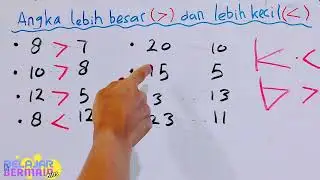 Angka lebih besar (>) dan lebih kecil (<)
• 8 > 7
• 10 > 8
• 12 > 5
• 8 < 12
• 20 10
5 5
3 13
23 11
K <
b >
BELAJAR
BERMAIN